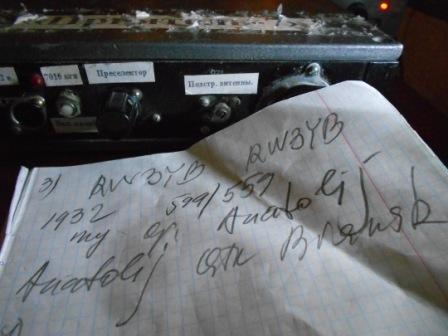 2 к.
7016 кгц
Преселектор
Подстр. антенны.
3) RW3YB RW3YB
1932 599/559
my op. Anatolij
Anatolij QTH Bransk